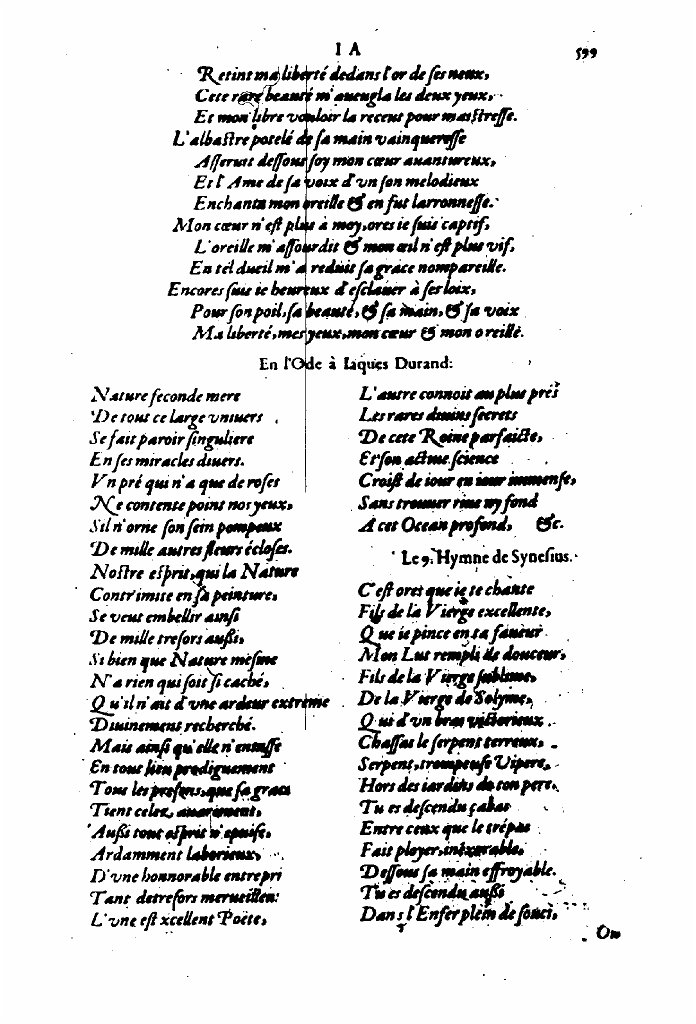 I A 599
Retint ma liberté dedans l'or de ses neux,
Cete rare beauté m'aueugla les deux yeux,
Et mon libre vouloir la receut pour maistresse.
L'albastre potelé de sa main vainqueresse
Asseruit dessous soy mon cœur auantureux,
Et l'Ame de sa voix d'vn son melodieux
Enchanta mon oreille & en fut larronnesse.
Mon cœur n'est plus à moy, ores ie suis captif,
L'oreille m'assourdit & mon œil n'est plus vif,
En tel dueil m'a reduit sa grace nompareille.
Encores suis ie heureux d'esclauer à ses loix,
Pour son poil, sa beauté, & sa main, & sa voix
Ma liberté, mes yeux, mon cœur & mon oreille.
En l'Ode à Iaques Durand:
Nature feconde mere
De tout ce large vniuers
Se fait paroir singuliere
En ses miracles diuers.
Vn pré qui n'a que de roses
Ne contente point nos yeux,
S'il n'orne son sein pompeux
De mille autres fleurs écloses.
Nostre esprit, qui la Nature
Contr'imite en sa peinture,
Se veut embellir ainsi
De mille tresors aussi,
Si bien que Nature mesme
N'a rien qui soit si caché,
Qu'il n'ait d'vne ardeur extreme
Diuinement recherché.
Mais ainsi qu'elle n'entasse
En tout lieu prodiguement
Tous les presens, que sa grace
Tient celez, auarement,
Aussi tout esprit n'epuise,
Ardamment laborieux,
D'vne honnorable entrepri
Tant de tresors merueilleu:
L'vne est xcellent Poëte,
L'autre connoit au plus prés
Les rares diuins secrets
De cete Roine parfaicte,
Et son actiue science
Croist de iour en iour immense,
Sans trouuer riue ny fond
A cet Ocean profond, &c.
Le 9. Hymne de Synesius.
C'est ores que ie te chante
Fils de la Vierge excellente,
Que ie pince en ta faueur
Mon Lut rempli de douceur,
Fils de la Vierge sublime,
De la Vierge de Solyme,
Qui d'vn bras victorieux
Chassas le serpent terreux,
Serpent, trompeuse Vipere,
Hors des iardins de ton pere,
Tu es descendu çabas
Entre ceux que le trépas
Fait ployer, inéxorable,
Dessous sa main effroyable.
Tu es descendu aussi
Dans l'Enfer plein de souci,
Ou